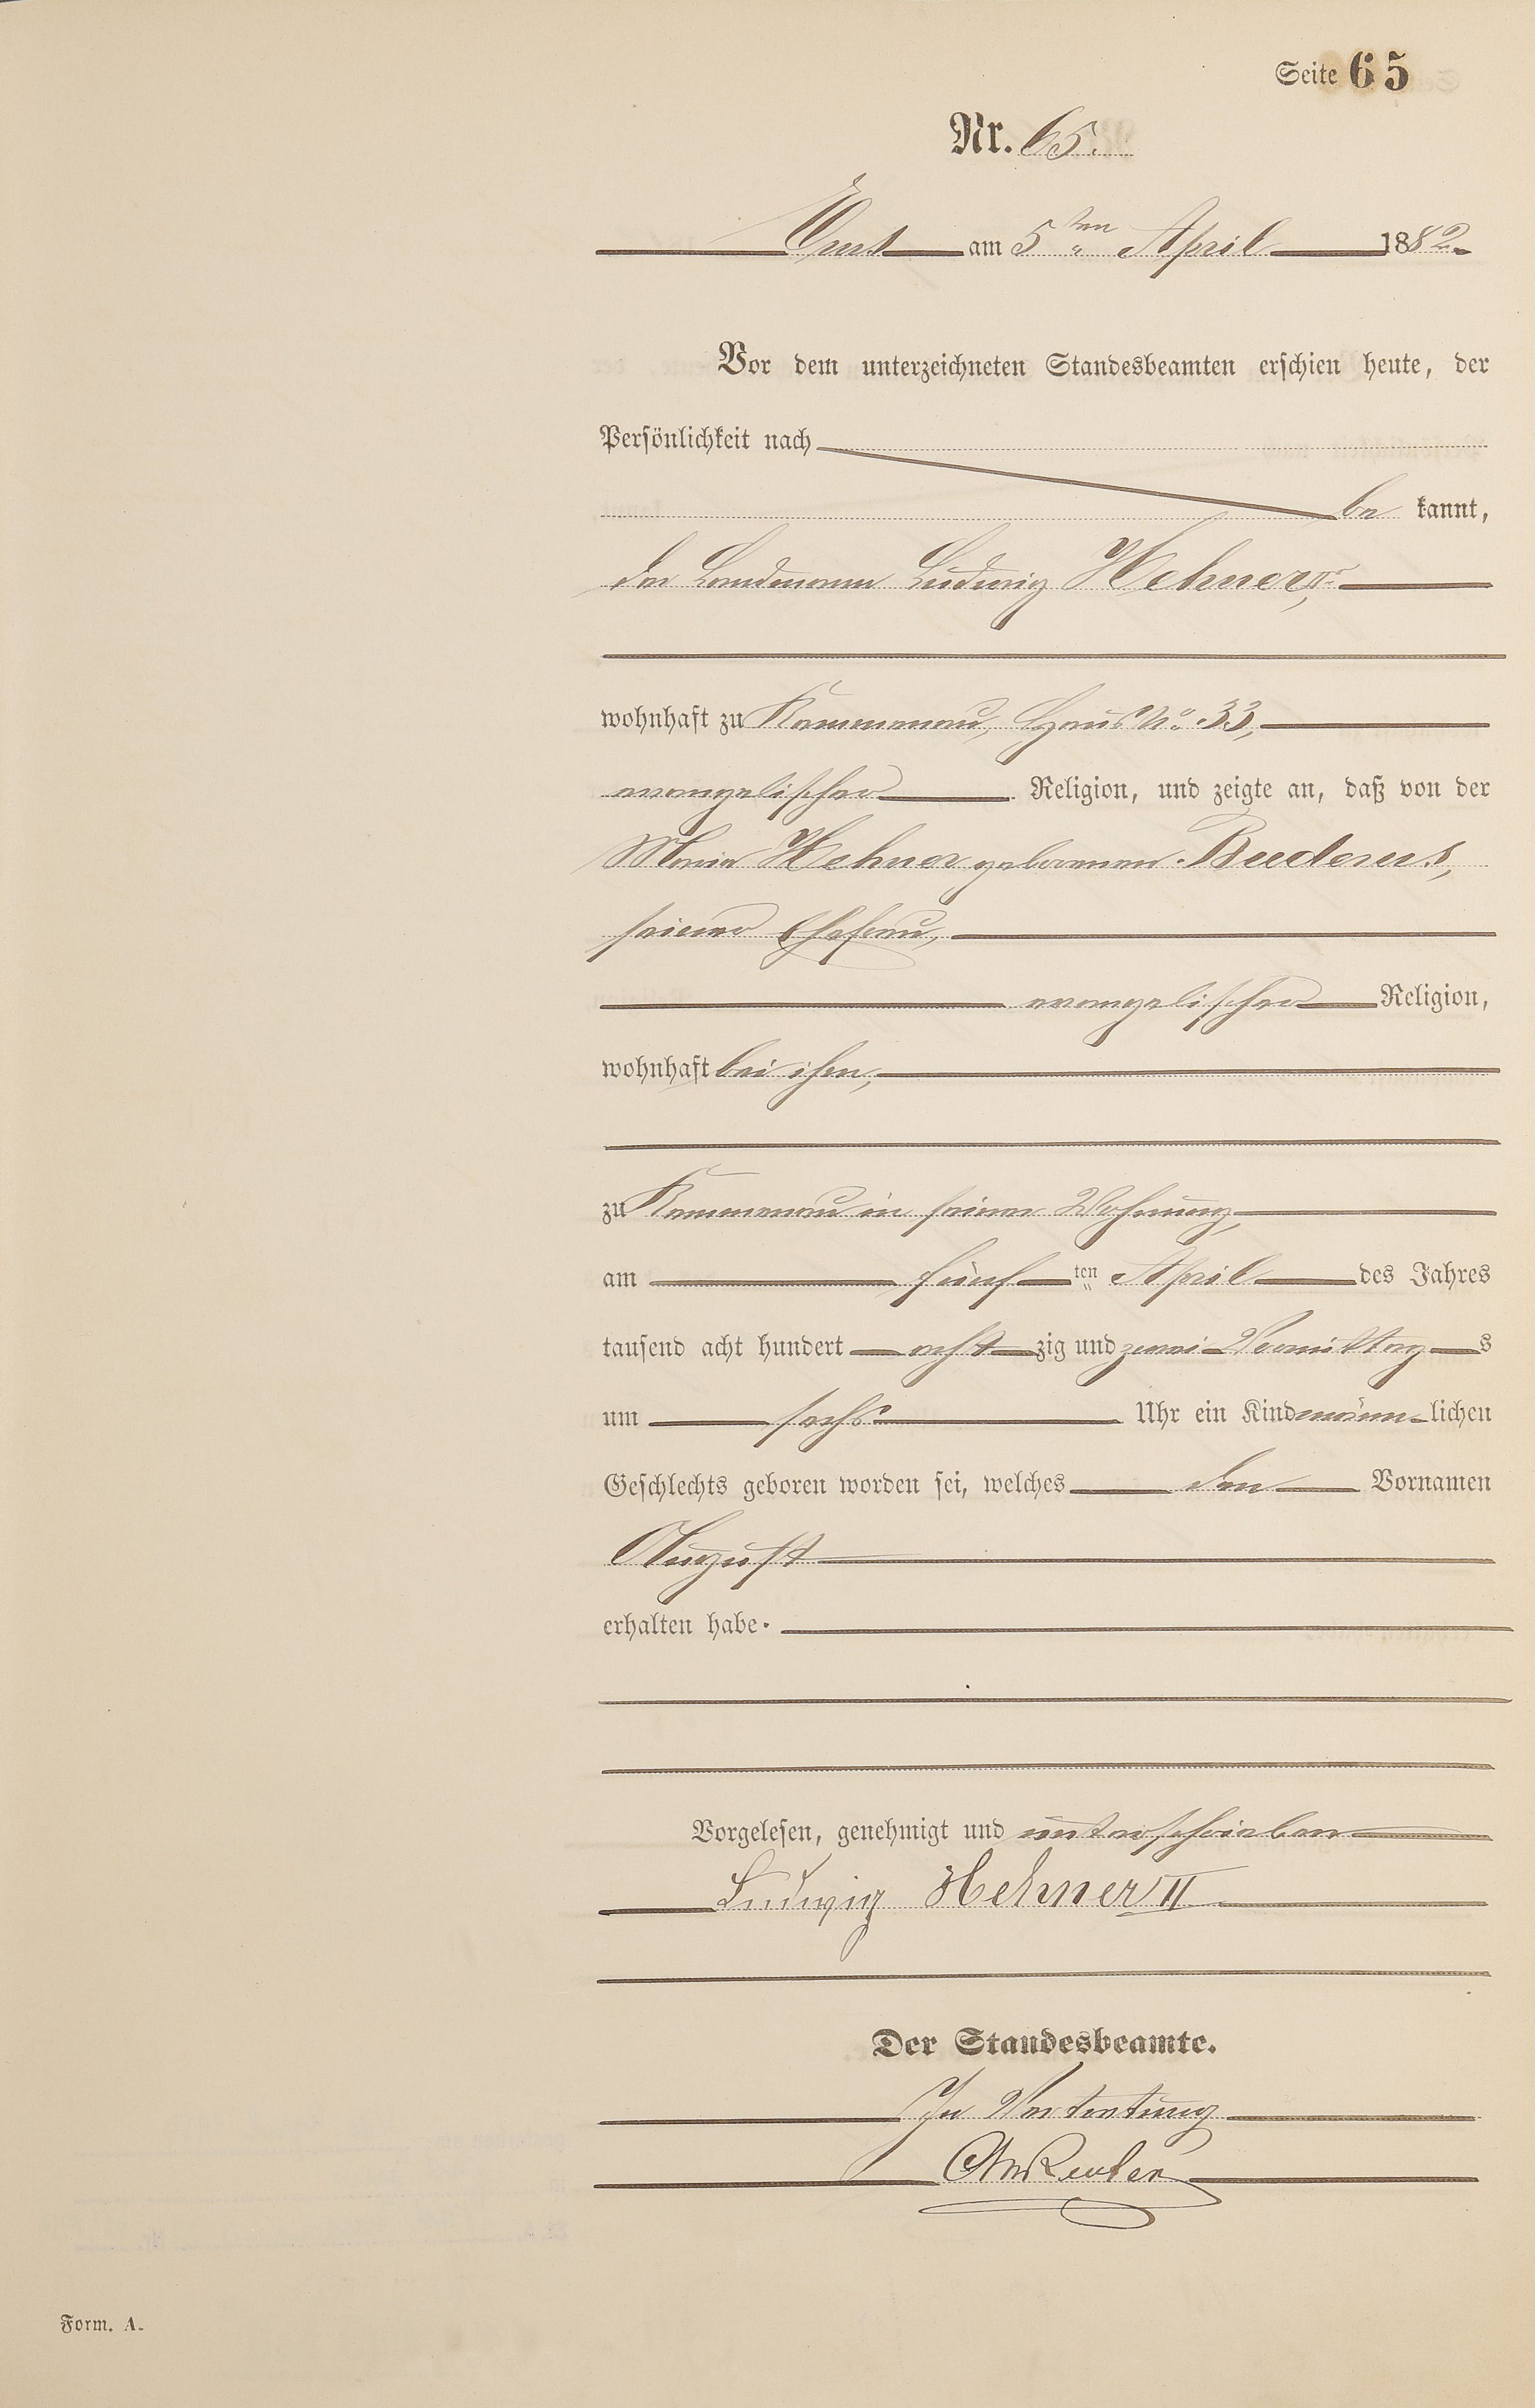 Seite 65
Nr. 65.
Ems am 5ten April 1882
Vor dem unterzeichneten Standesbeamten erschien heute, der
Persönlichkeit nach
be kannt,
der Landmann Ludwig Hehner, IIr
wohnhaft zu Kemmenau, Haus No. 33,
evangelischer Religion, und zeigte an, daß von der
Maria Hehner geborenen Buderus,
seiner Ehefrau,
evangelischer Religion,
wohnhaft bei ihm,
zu Kemmenau in seiner Wohnung,
am fünf ten April des Jahres
tausend acht hundert acht zig und zwei Vormittag s
um sechs Uhr ein Kind männ lichen
Geschlechts geboren worden sei, welches den Vornamen
August
erhalten habe.
Vorgelesen, genehmigt und unterschrieben
Ludwig Hehner II
Der Standesbeamte.
In Vertretung
Form. A.